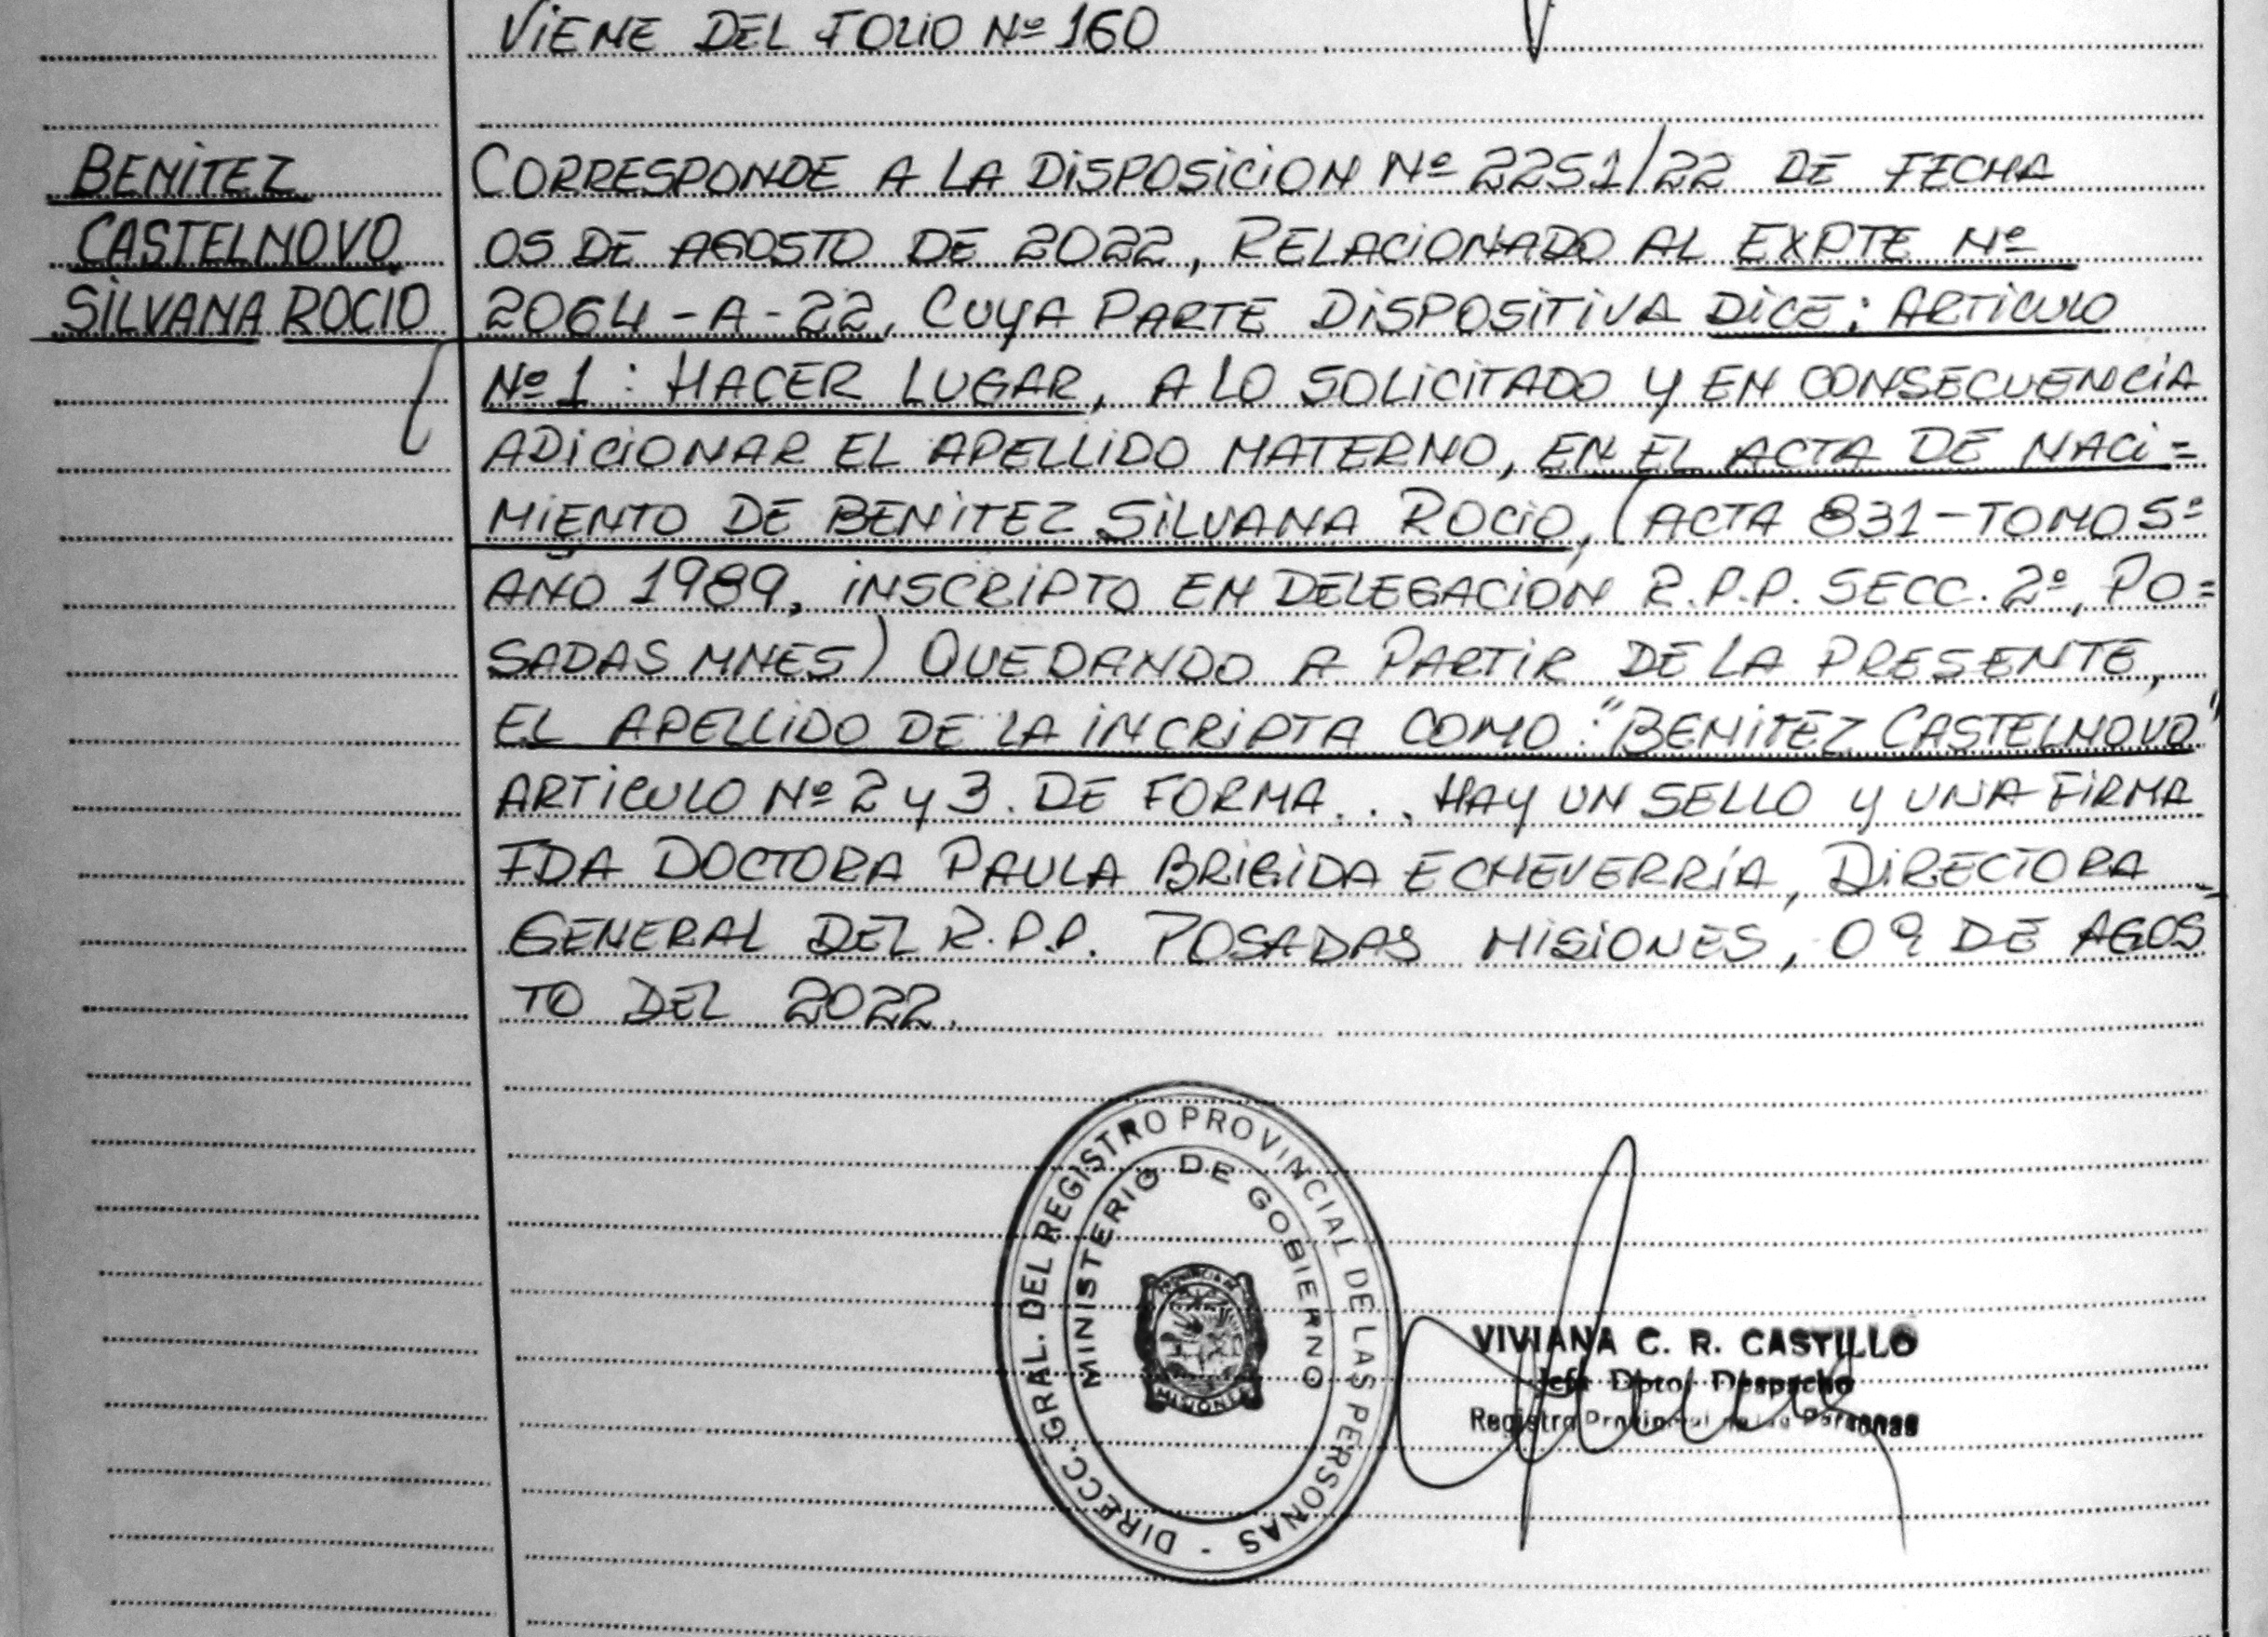 VIENE DEL FOLIO Nº 160
BENITEZ
CASTELNOVO
SILVANA ROCIO
CORRESPONDE A LA DISPOSICION Nº 2251/22 DE FECHA
05 DE AGOSTO DE 2022, RELACIONADO AL EXPTE Nº
2064-A-22, CUYA PARTE DISPOSITIVA DICE: ARTICULO
Nº 1: HACER LUGAR, A LO SOLICITADO Y EN CONSECUENCIA
ADICIONAR EL APELLIDO MATERNO, EN EL ACTA DE NACI=
MIENTO DE BENITEZ SILVANA ROCIO, (ACTA 831-TOMO 5º
AÑO 1989, INSCRIPTO EN DELEGACION R.P.P. SECC. 2º, PO=
SADAS MNES) QUEDANDO A PARTIR DE LA PRESENTE,
EL APELLIDO DE LA INCRIPTA COMO: "BENITEZ CASTELNOVO"
ARTICULO Nº 2 Y 3. DE FORMA... HAY UN SELLO Y UNA FIRMA
FDA DOCTORA PAULA BRIGIDA ECHEVERRIA, DIRECTORA
GENERAL DEL R.P.P. POSADAS MISIONES, 09 DE AGOS
TO DEL 2022.
DIRECC. GRAL. DEL REGISTRO PROVINCIAL DE LAS PERSONAS -
MINISTERIO DE GOBIERNO
PROVINCIA DE
MISIONES
VIVIANA C. R. CASTILLO
Jefa Dpto. Despacho
Registro Provincial de las Personas